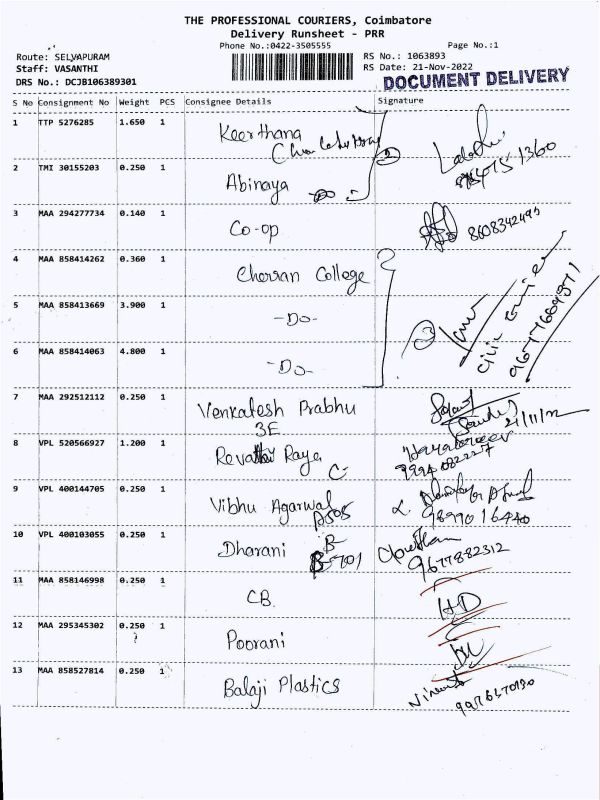 THE PROFESSIONAL COURIERS, Coimbatore
Delivery Runsheet - PRR
Phone No.:0422-3505555
Page No.:1
Route: SELVAPURAM
RS No.: 1063893
Staff: VASANTHI
RS Date: 21-Nov-2022
DRS No.: DCJB106389301
DOCUMENT DELIVERY
S No Consignment No Weight PCS Consignee Details Signature
1 TTP 5276285 1.650 1 Keerthana
2 TMI 30155203 0.250 1 Abinaya -Do-
3 MAA 294277734 0.140 1 Co-op 8608342495
4 MAA 858414262 0.360 1 Cherran College
5 MAA 858413669 3.900 1 -Do- 3
6 MAA 858414063 4.800 1 -Do-
civic courier
9677664971
7 MAA 292512112 0.250 1 Venkatesh Prabhu
3E
21/11/22
8 VPL 520566927 1.200 1 Revathi Raya
C-
9994082227
9 VPL 400144705 0.250 1 Vibhu Agarwal
A505
9899016440
10 VPL 400103055 0.250 1 Dharani B-701
9677882312
11 MAA 858146998 0.250 1 CB. HD
12 MAA 295345302 0.250 1 Poorani
13 MAA 858527814 0.250 1 Balaji Plastics